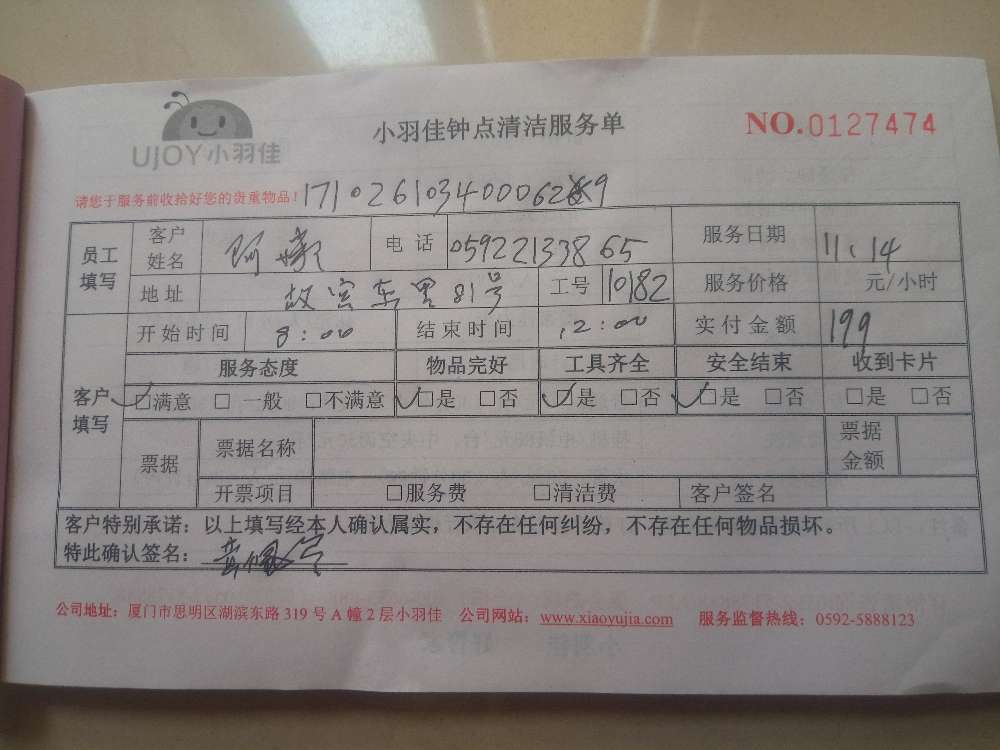 UJOY小羽佳
小羽佳钟点清洁服务单
NO.0127474
请您于服务前收拾好您的贵重物品!
员工填写 客户姓名 阿 电话 05922133865 服务日期 11.14
地址 故宫东里81号 工号 10182 服务价格 元/小时
客户填写 开始时间 8:00 结束时间 12:00 实付金额 199
服务态度 物品完好 工具齐全 安全结束 收到卡片
✓□满意 □一般 □不满意 ✓□是 □否 ✓□是 □否 ✓□是 □否 □是 □否
票据 票据名称 票据金额
开票项目 □服务费 □清洁费 客户签名
客户特别承诺：以上填写经本人确认属实，不存在任何纠纷，不存在任何物品损坏。
特此确认签名：
公司地址：厦门市思明区湖滨东路319号A幢2层小羽佳 公司网站：www.xiaoyujia.com 服务监督热线：0592-5888123